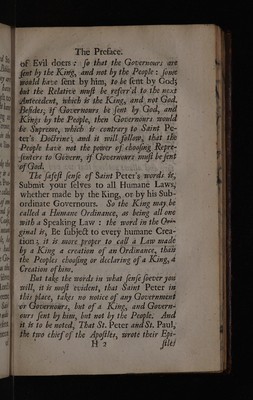 The Preface.
of Evil doers : so that the Governours are
sent by the King, and not by the People : some
would have sent by him, to be sent by God;
but the Relative must be referr'd to the next
Antecedent, which is the King, and not God.
Besides, if Governours be sent by God, and
Kings by the People, then Governours would
be Supreme, which is contrary to Saint Pe-
ter's Doctrine; and it will follow, that the
People have not the power of choosing Repre-
senters to Govern, if Governours must be sent
of God.
The safest sense of Saint Peter's words is,
Submit your selves to all Humane Laws,
whether made by the King, or by his Sub-
ordinate Governours. So the King may be
called a Humane Ordinance, as being all one
with a Speaking Law : the word in the Ori-
ginal is, Be subject to every humane Crea-
tion ; it is more proper to call a Law made
by a King a creation of an Ordinance, than
the Peoples choosing or declaring of a King, a
Creation of him.
But take the words in what sense soever you
will, it is most evident, that Saint Peter in
this place, takes no notice of any Government
or Governours, but of a King, and Govern-
ours sent by him, but not by the People. And
it is to be noted, That St. Peter and St. Paul,
the two chief of the Apostles, wrote their Epi-
H 2 stles